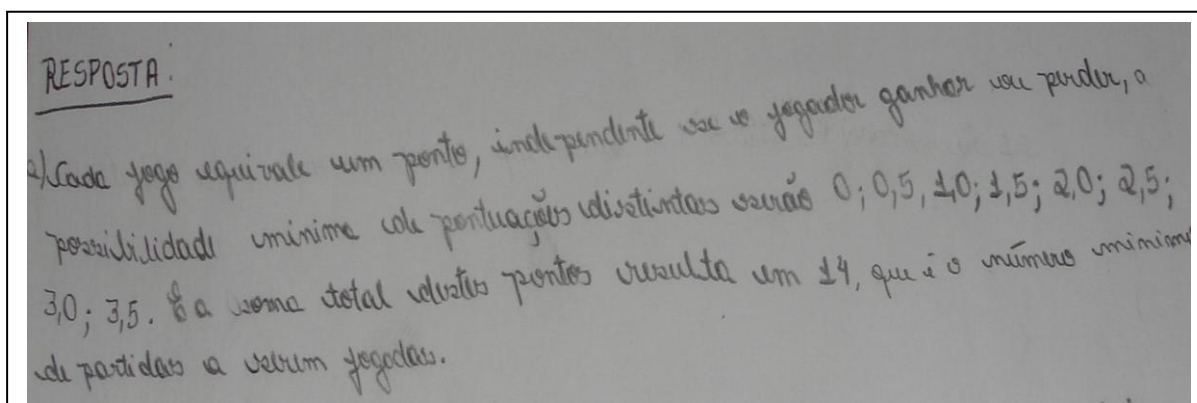 RESPOSTA:
a) Cada jogo equivale um ponto, independente se o jogador ganhar ou perder, a
possibilidade minima de pontuações distintas serão 0; 0,5, 1,0; 1,5; 2,0; 2,5;
3,0; 3,5. E a soma total destes pontos resulta em 14, que é o número minimo
de partidas a serem jogadas.